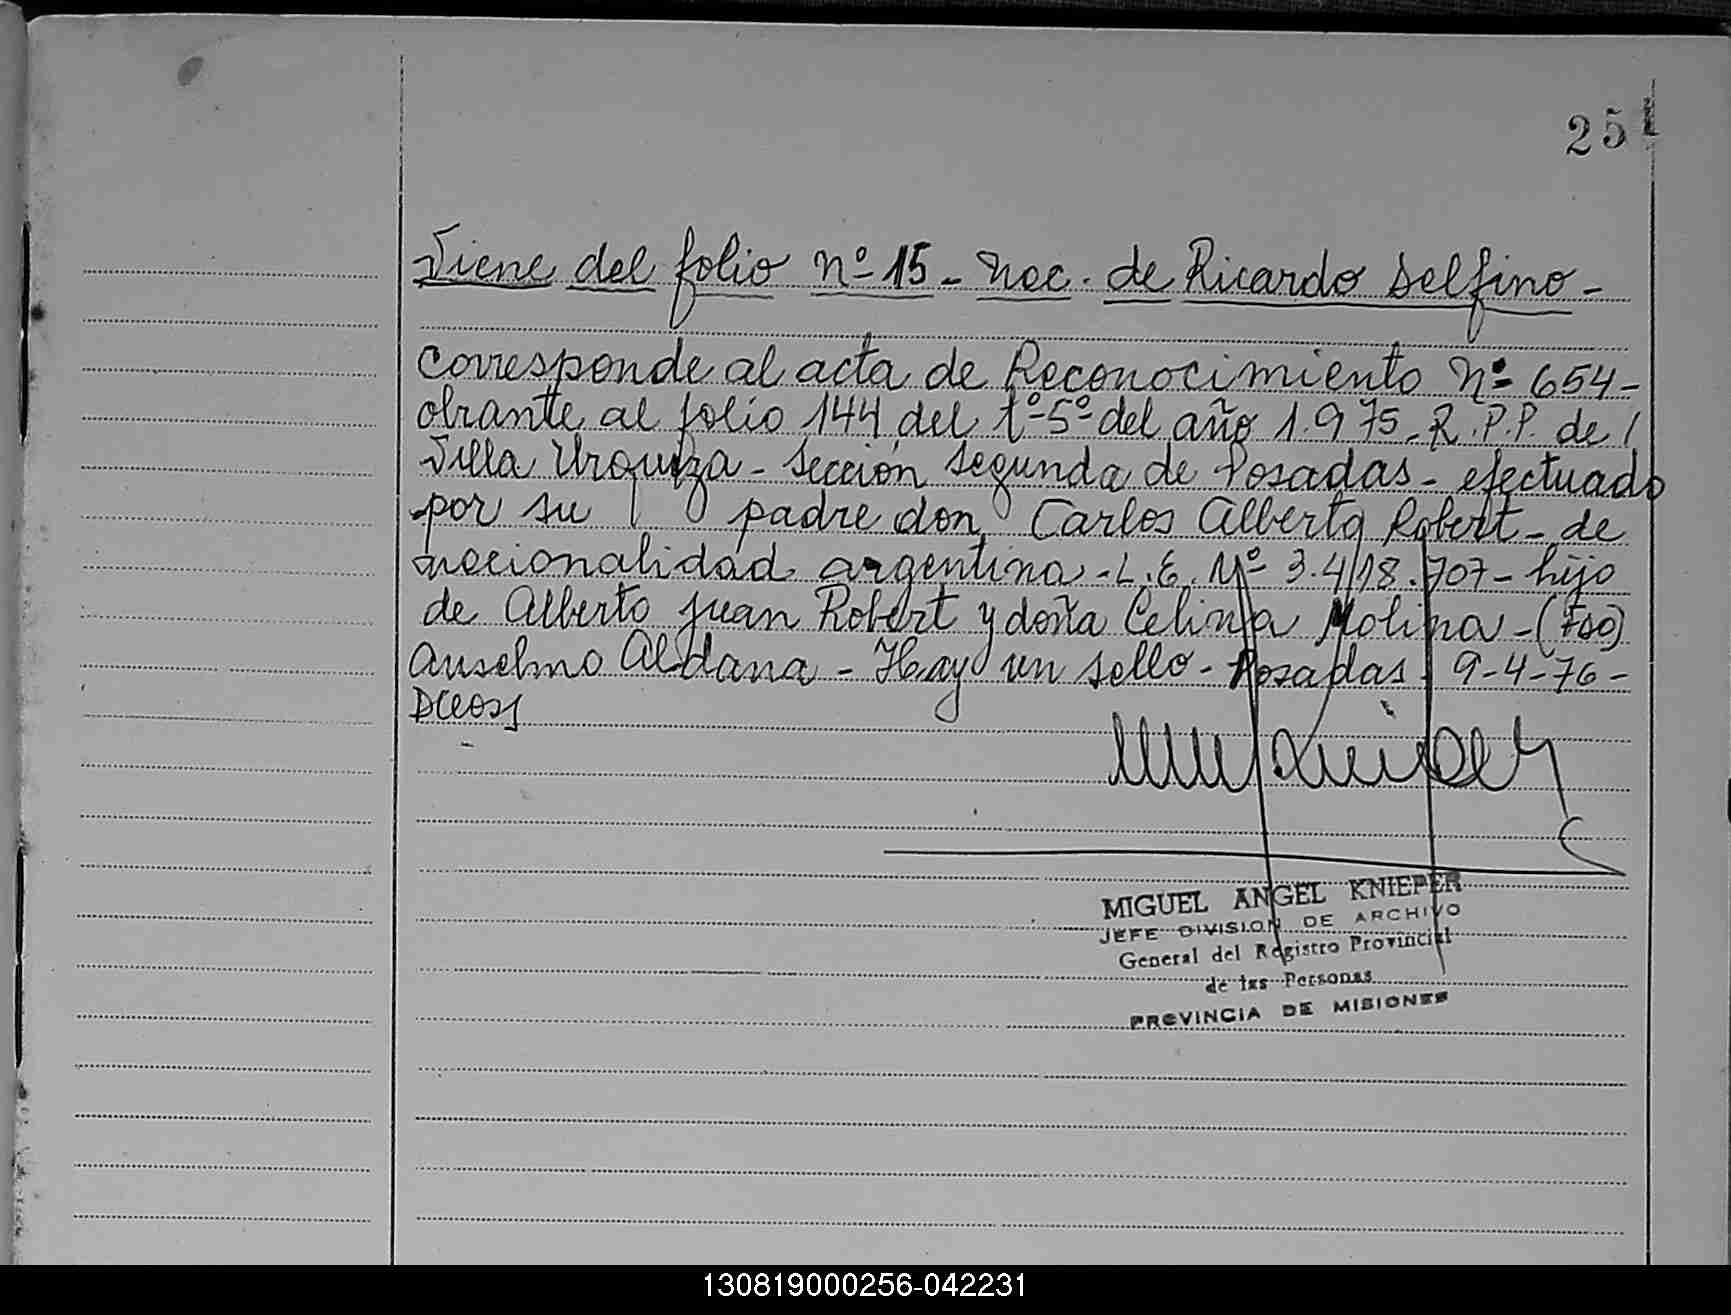 25
Viene del folio nº 15 - Nac. de Ricardo Delfino -
Corresponde al acta de Reconocimiento Nº 654 -
obrante al folio 144 del tº 5º del año 1.975. R.P.P. de /
Villa Urquiza - Sección Segunda de Posadas - efectuado
por su padre don Carlos Alberto Robert - de
nacionalidad argentina - L.E. Nº 3.418.707 - hijo
de Alberto Juan Robert y doña Celina Molina - (Fdo)
Anselmo Aldana - Hay un sello - Posadas 9-4-76 -
MIGUEL ANGEL KNIEPER
JEFE DIVISION DE ARCHIVO
General del Registro Provincial
de las Personas
PROVINCIA DE MISIONES
130819000256-042231